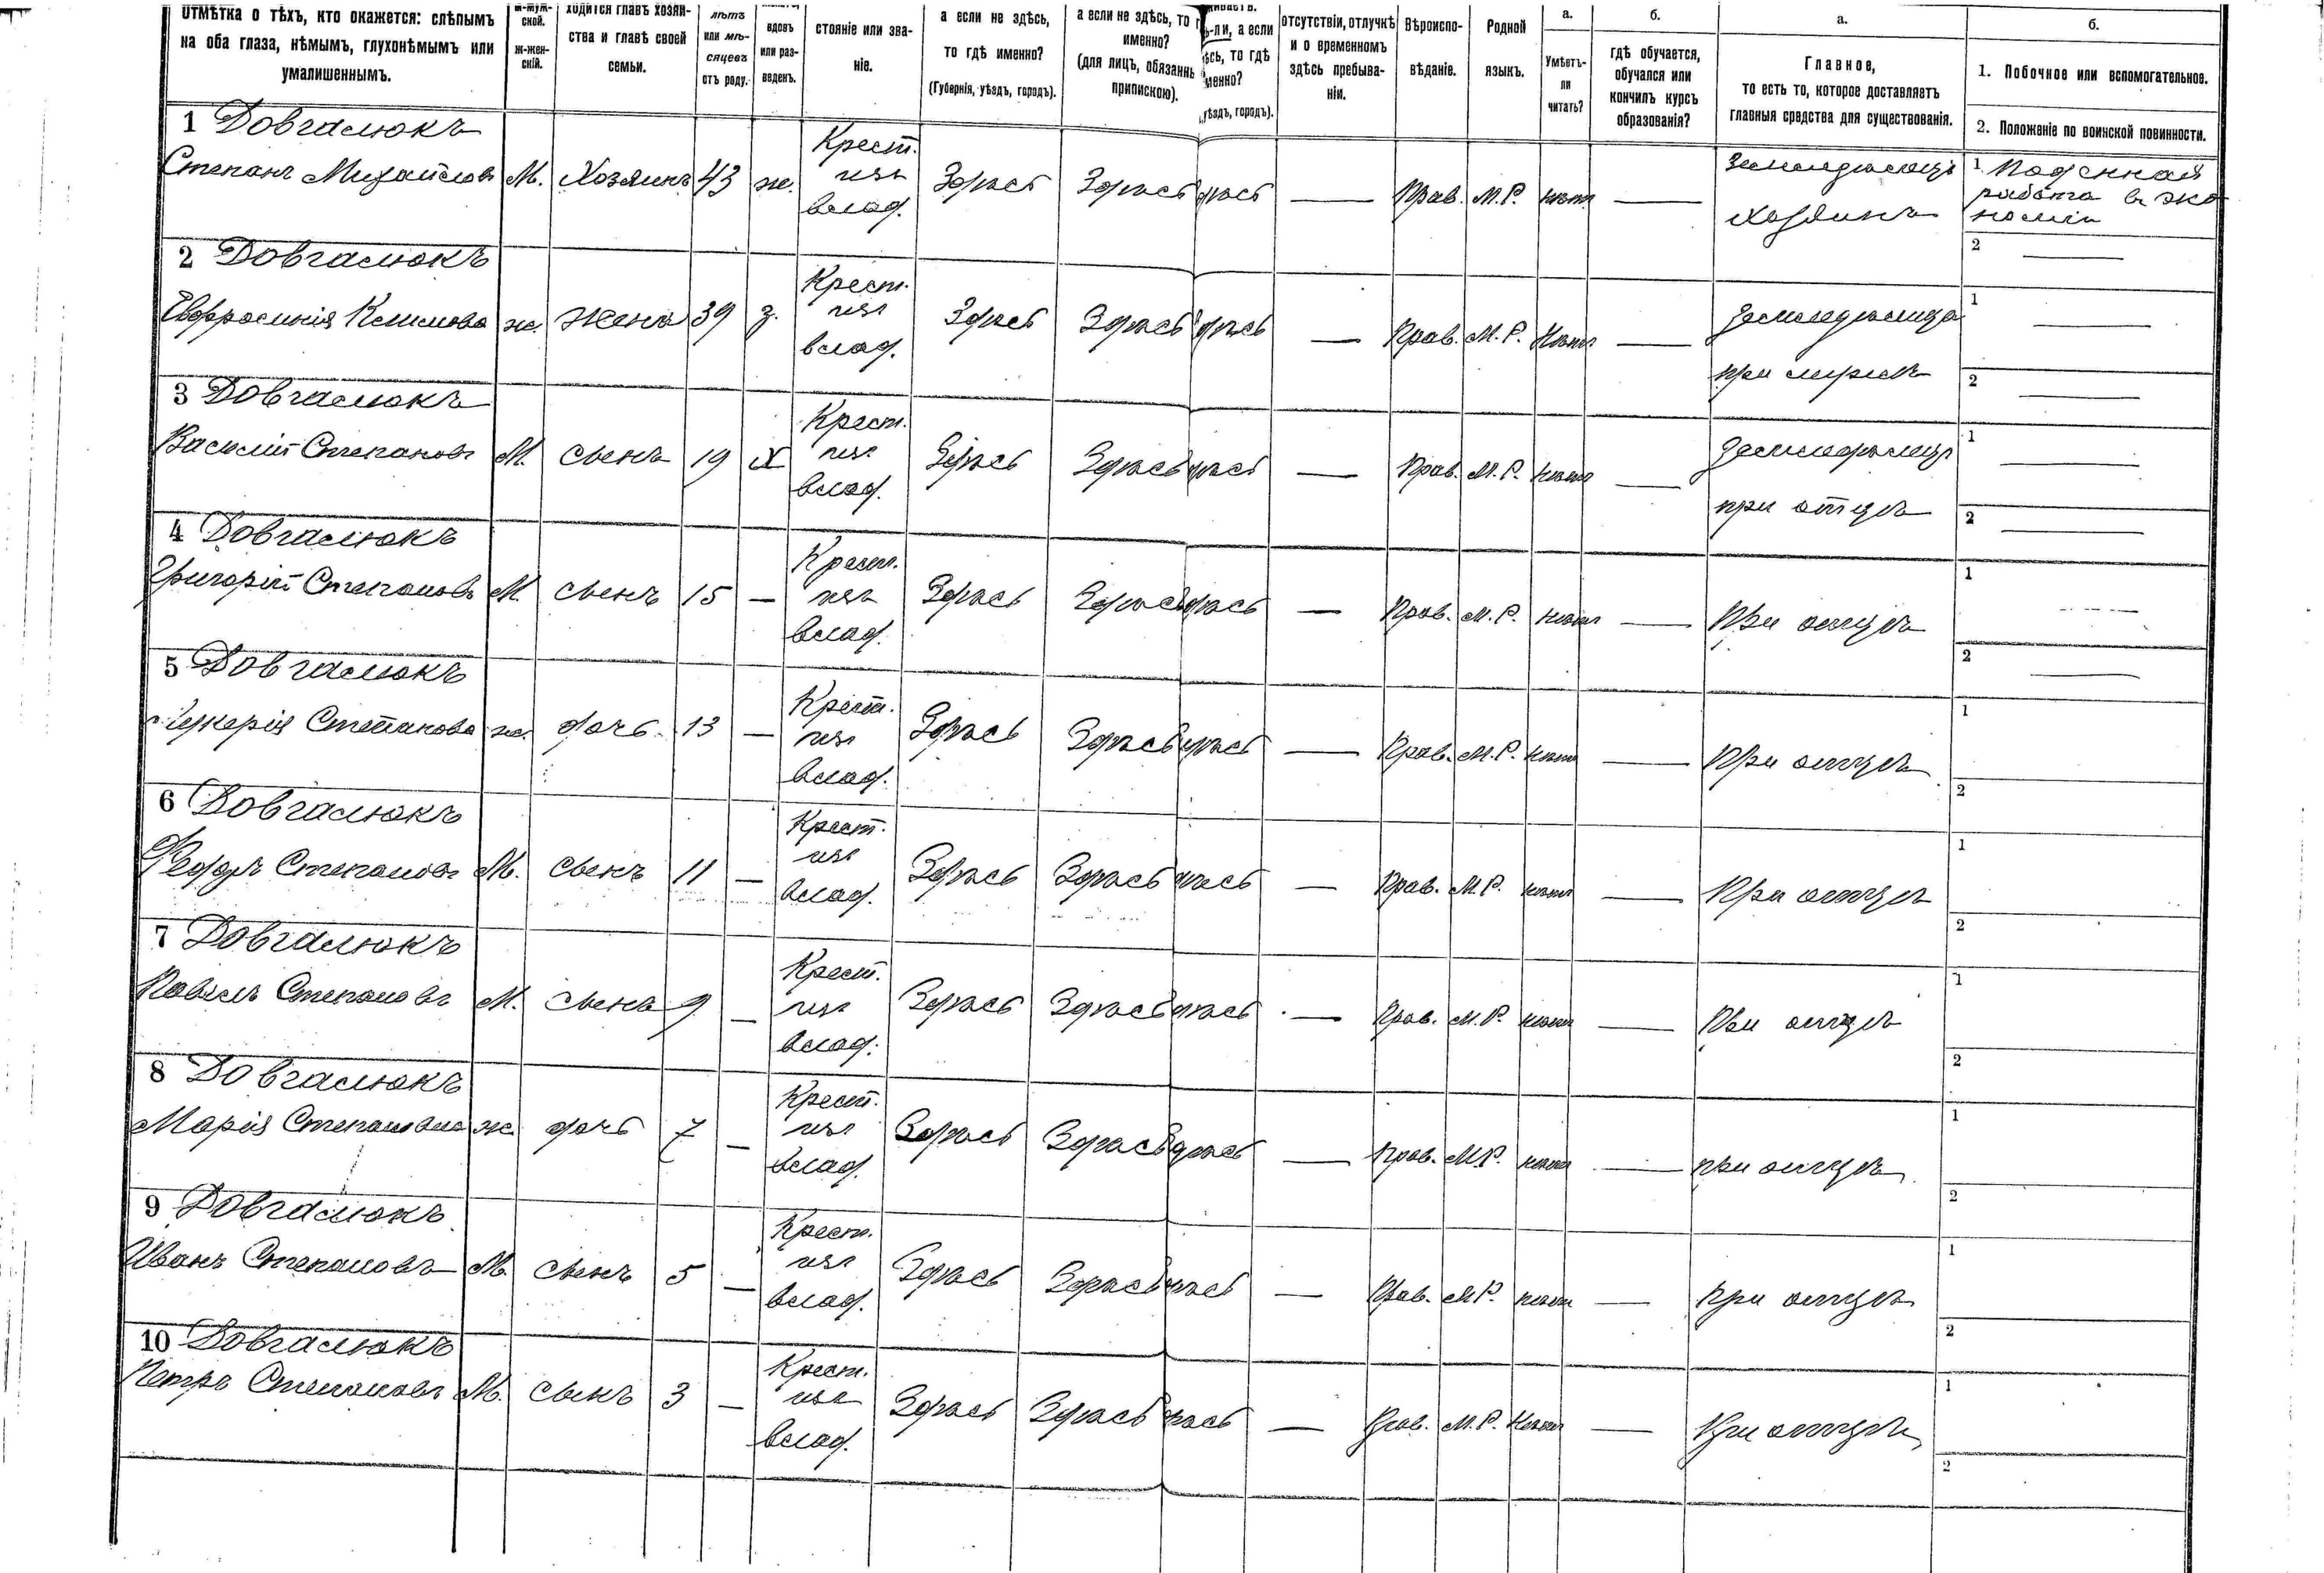 отмѣтка о тѣхъ, кто окажется: слѣпымъ
на оба глаза, нѣмымъ, глухонѣмымъ или
умалишеннымъ.
м-муж-
ской.
ж-жен-
скій.
ходится главѣ хозяй-
ства и главѣ своей
семьи.
лѣтъ
или мѣ-
сяцевъ
отъ роду.
вдовъ
или раз-
веденъ.
стояніе или зва-
ніе.
а если не здѣсь,
то гдѣ именно?
(Губернія, уѣздъ, городъ).
а если не здѣсь, то г
именно?
(для лицъ, обязаннь
припискою).
ь-ли, а если
ѣсь, то гдѣ
менно?
уѣздъ, городъ).
отсутствіи, отлучкѣ
и о временномъ
здѣсь пребыва-
ніи.
Вѣроиспо-
вѣданіе.
Родной
языкъ.
а.
Умѣетъ-
ли
читать?
б.
гдѣ обучается,
обучался или
кончилъ курсъ
образованія?
а.
Главное,
то есть то, которое доставляетъ
главныя средства для существованія.
б.
1. Побочное или вспомогательное.
2. Положеніе по воинской повинности.
1 Довгалюкъ
Степанъ Михайловъ М. Хозяинъ 43 ж. Крест. изъ влад. Здѣсь Здѣсь дѣсь — Прав. М.Р. нѣтъ — Земледѣлецъ хозяинъ 1 Поденная работа въ эко номіи
2 —
2 Довгалюкъ
Евфросинія Климова ж. жена 39 з. Крест. изъ влад. Здѣсь Здѣсь дѣсь — Прав. М.Р. Нѣтъ — при мужѣ 1 —
2 —
3 Довгалюкъ
Василій Степановъ М. сынъ 19 х Крест. изъ влад. Здѣсь Здѣсь дѣсь — Прав. М.Р. нѣтъ — Земледѣлецъ при отцѣ 1 —
2 —
4 Довгалюкъ
Григорій Степановъ М. сынъ 15 — Крест. изъ влад. Здѣсь Здѣсь дѣсь — Прав. М.Р. нѣтъ — При отцѣ 1 —
2 —
5 Довгалюкъ
Степанова ж. дочь 13 — Крест. изъ влад. Здѣсь Здѣсь дѣсь — Прав. М.Р. нѣтъ — При отцѣ 1
2
6 Довгалюкъ
Федоръ Степановъ М. сынъ 11 — Крест. изъ влад. Здѣсь Здѣсь дѣсь — Прав. М.Р. нѣтъ — При отцѣ 1
2
7 Довгалюкъ
Павелъ Степановъ М. сынъ 9 — Крест. изъ влад. Здѣсь Здѣсь дѣсь — Прав. М.Р. нѣтъ — При отцѣ 1
2
8 Довгалюкъ
Марія Степанова ж. дочь 7 — Крест. изъ влад. Здѣсь Здѣсь дѣсь — Прав. М.Р. нѣтъ — при отцѣ 1
2
9 Довгалюкъ
Иванъ Степановъ М. сынъ 5 — Крест. изъ влад. Здѣсь Здѣсь дѣсь — Прав. М.Р. нѣтъ — при отцѣ 1
2
10 Довгалюкъ
Петръ Степановъ М. сынъ 3 — Крест. изъ влад. Здѣсь Здѣсь дѣсь — Прав. М.Р. Нѣтъ — При отцѣ 1
2